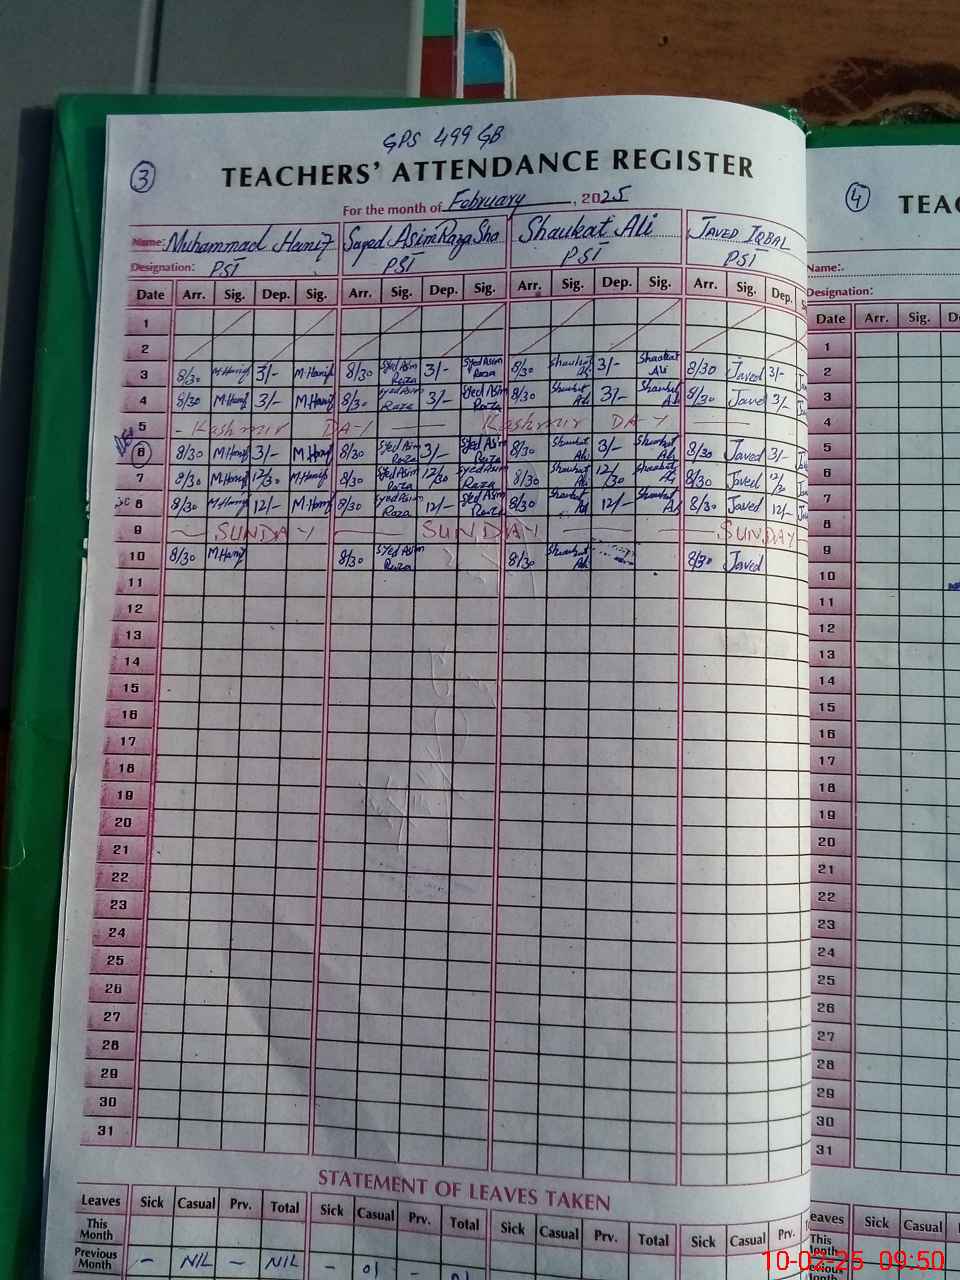 GPS 499 GB
3 TEACHERS' ATTENDANCE REGISTER
For the month of February, 2025
Name: Muhammad Hanif Sayed Asim Raza Sha Shaukat Ali Javed Iqbal
Designation: PST PST PST PST
Date Arr. Sig. Dep. Sig. Arr. Sig. Dep. Sig. Arr. Sig. Dep. Sig. Arr. Sig. Dep.
1
2
3 8/30 M.Hanif 3/- M.Hanif 8/30 Syed Asim Raza 3/- Syed Asim Raza 8/30 Shaukat Ali 3/- Shaukat Ali 8/30 Javed 3/-
4 8/30 M.Hanif 3/- M.Hanif 8/30 Syed Asim Raza 3/- Syed Asim Raza 8/30 Shaukat Ali 3/- Shaukat Ali 8/30 Javed 3/-
5 - Kashmir DAY - Kashmir DAY
6 8/30 M.Hanif 3/- M.Hanif 8/30 Syed Asim Raza 3/- Syed Asim Raza 8/30 Shaukat Ali 3/- Shaukat Ali 8/30 Javed 3/-
7 8/30 M.Hanif 12/30 M.Hanif 8/30 Syed Asim Raza 12/30 Syed Asim Raza 8/30 Shaukat Ali 12/30 Shaukat Ali 8/30 Javed 12/30
8 8/30 M.Hanif 12/- M.Hanif 8/30 Syed Asim Raza 12/- Syed Asim Raza 8/30 Shaukat Ali 12/- Shaukat Ali 8/30 Javed 12/-
9 SUNDAY SUNDAY SUNDAY
10 8/30 M.Hanif 8/30 Syed Asim Raza 8/30 Shaukat Ali 8/30 Javed
11
12
13
14
15
16
17
18
19
20
21
22
23
24
25
26
27
28
29
30
31
STATEMENT OF LEAVES TAKEN
Leaves Sick Casual Prv. Total Sick Casual Prv. Total Sick Casual Prv. Total Sick Casual Prv.
This Month
Previous Month - NIL - NIL - 01 - 01
4 TEAC
Name:
Designation:
Date Arr. Sig.
1
2
3
4
5
6
7
8
9
10
11
12
13
14
15
16
17
18
19
20
21
22
23
24
25
26
27
28
29
30
31
eaves Sick Casual
10-02-25 09:50